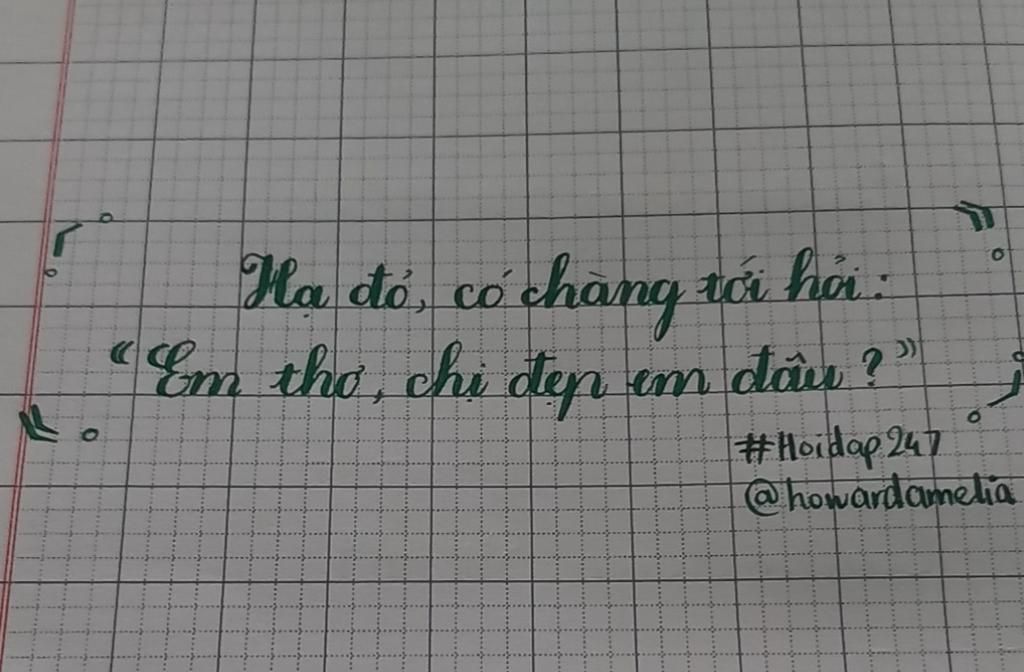 Hạ đỏ, có chàng tới hỏi:
“Em thơ, chị đẹp em đâu?”
#Hoidap247
@howardamelia